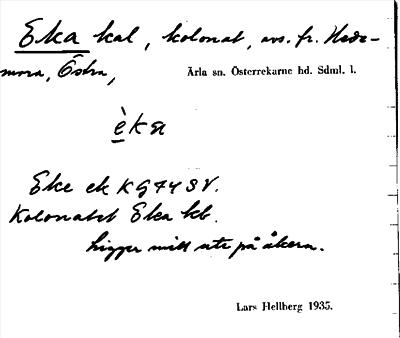 Eka kal, kolonat, avs. fr. Hede-
mora, Östra,
Ärla sn. Österrekarne hd. Sdml. l.
èka
Eke ek KG 74 SV.
Kolonatet Eka kb.
ligger mitt ute på åkern.
Lars Hellberg 1935.